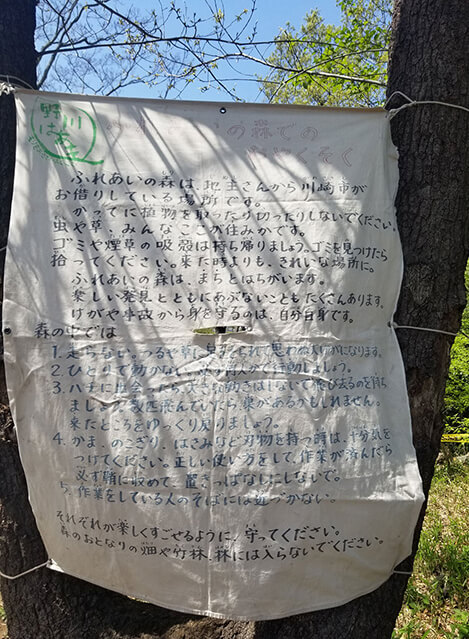 野川
はあも
ふれあいの森での
やくそく
ふれあいの森は、地主さんから川崎市が
お借りしている場所です。
かってに植物を取ったり切ったりしないでください。
虫や草、みんなここが住みかです。
ゴミや煙草の吸殻は持ち帰りましょう。ゴミを見つけたら
拾ってください。来た時よりも、きれいな場所に。
ふれあいの森は、まちとはちがいます。
楽しい発見とともにあぶないこともたくさんあります。
けがや事故から身を守るのは、自分自身です。
森の中では
1. 走らない。つるや草に足をとられて思わぬケガになります。
2. ひとりで動かない。人で行動しましょう。
3. ハチに出会ったら大きな動きはしないで飛び去るのを待ち
ましょう。数匹飛んでいたら巣があるかもしれません。
来たところをゆっくり戻りましょう。
4. かま、のこぎり、はさみなど刃物を持つ時は、十分気を
つけてください。正しい使い方をして、作業が済んだら
必ず鞘に収めて、置きっぱなしにしないで。
5. 作業をしている人のそばには近づかない。
それぞれが楽しくすごせるように、守ってください。
森のおとなりの畑や竹林、林には入らないでください。